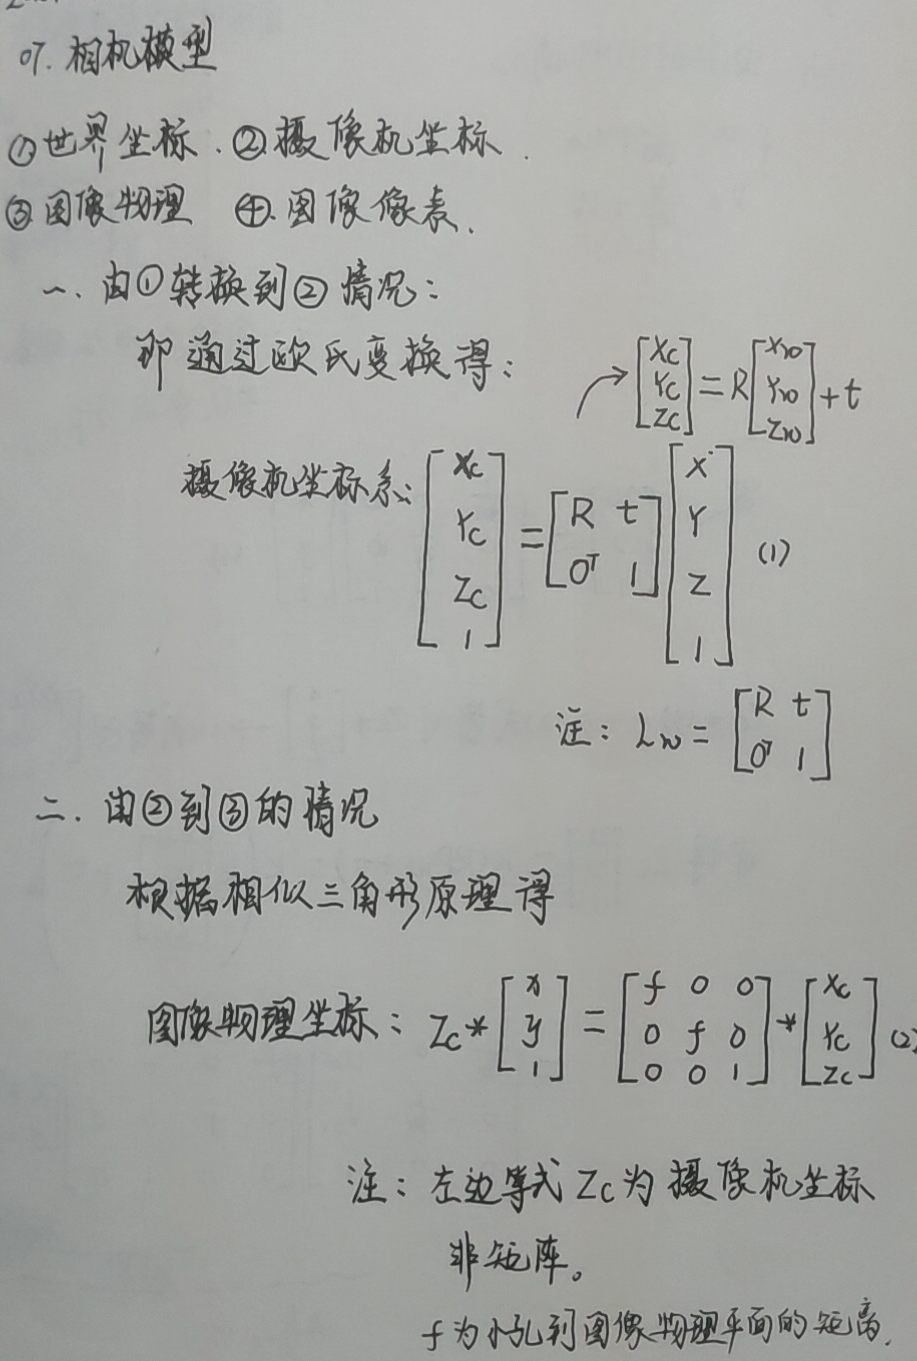 07. 相机模型
①世界坐标. ②摄像机坐标.
③图像物理 ④.图像像素.
一. 由①转换到②情况:
即通过欧氏变换得:
[Xc Yc Zc] = R [Xw Yw Zw] + t
摄像机坐标系: [Xc Yc Zc 1] = [R t 0ᵀ 1] [X Y Z 1] (1)
注: Lw = [R t 0ᵀ 1]
二. 由②到③的情况
根据相似三角形原理得
图像物理坐标: Zc * [x y 1] = [f 0 0 0 f 0 0 0 1] * [Xc Yc Zc] (2)
注: 左边等式 Zc 为摄像机坐标
非矩阵。
f 为小孔到图像物理平面的距离.